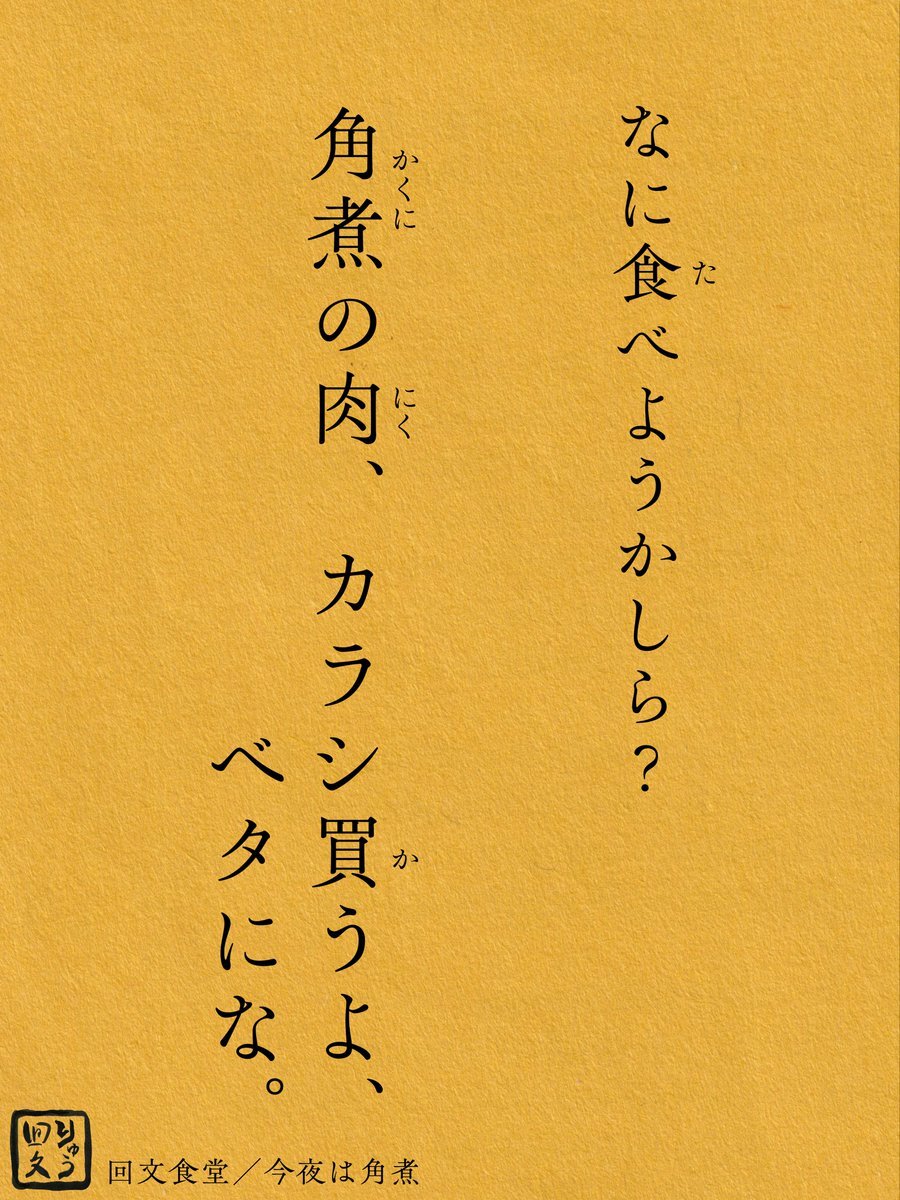 なに食べようかしら?
た
角煮の肉、カラシ買うよ、
かくに
にく
か
ベタにな。
りゅう
回文
回文食堂/今夜は角煮